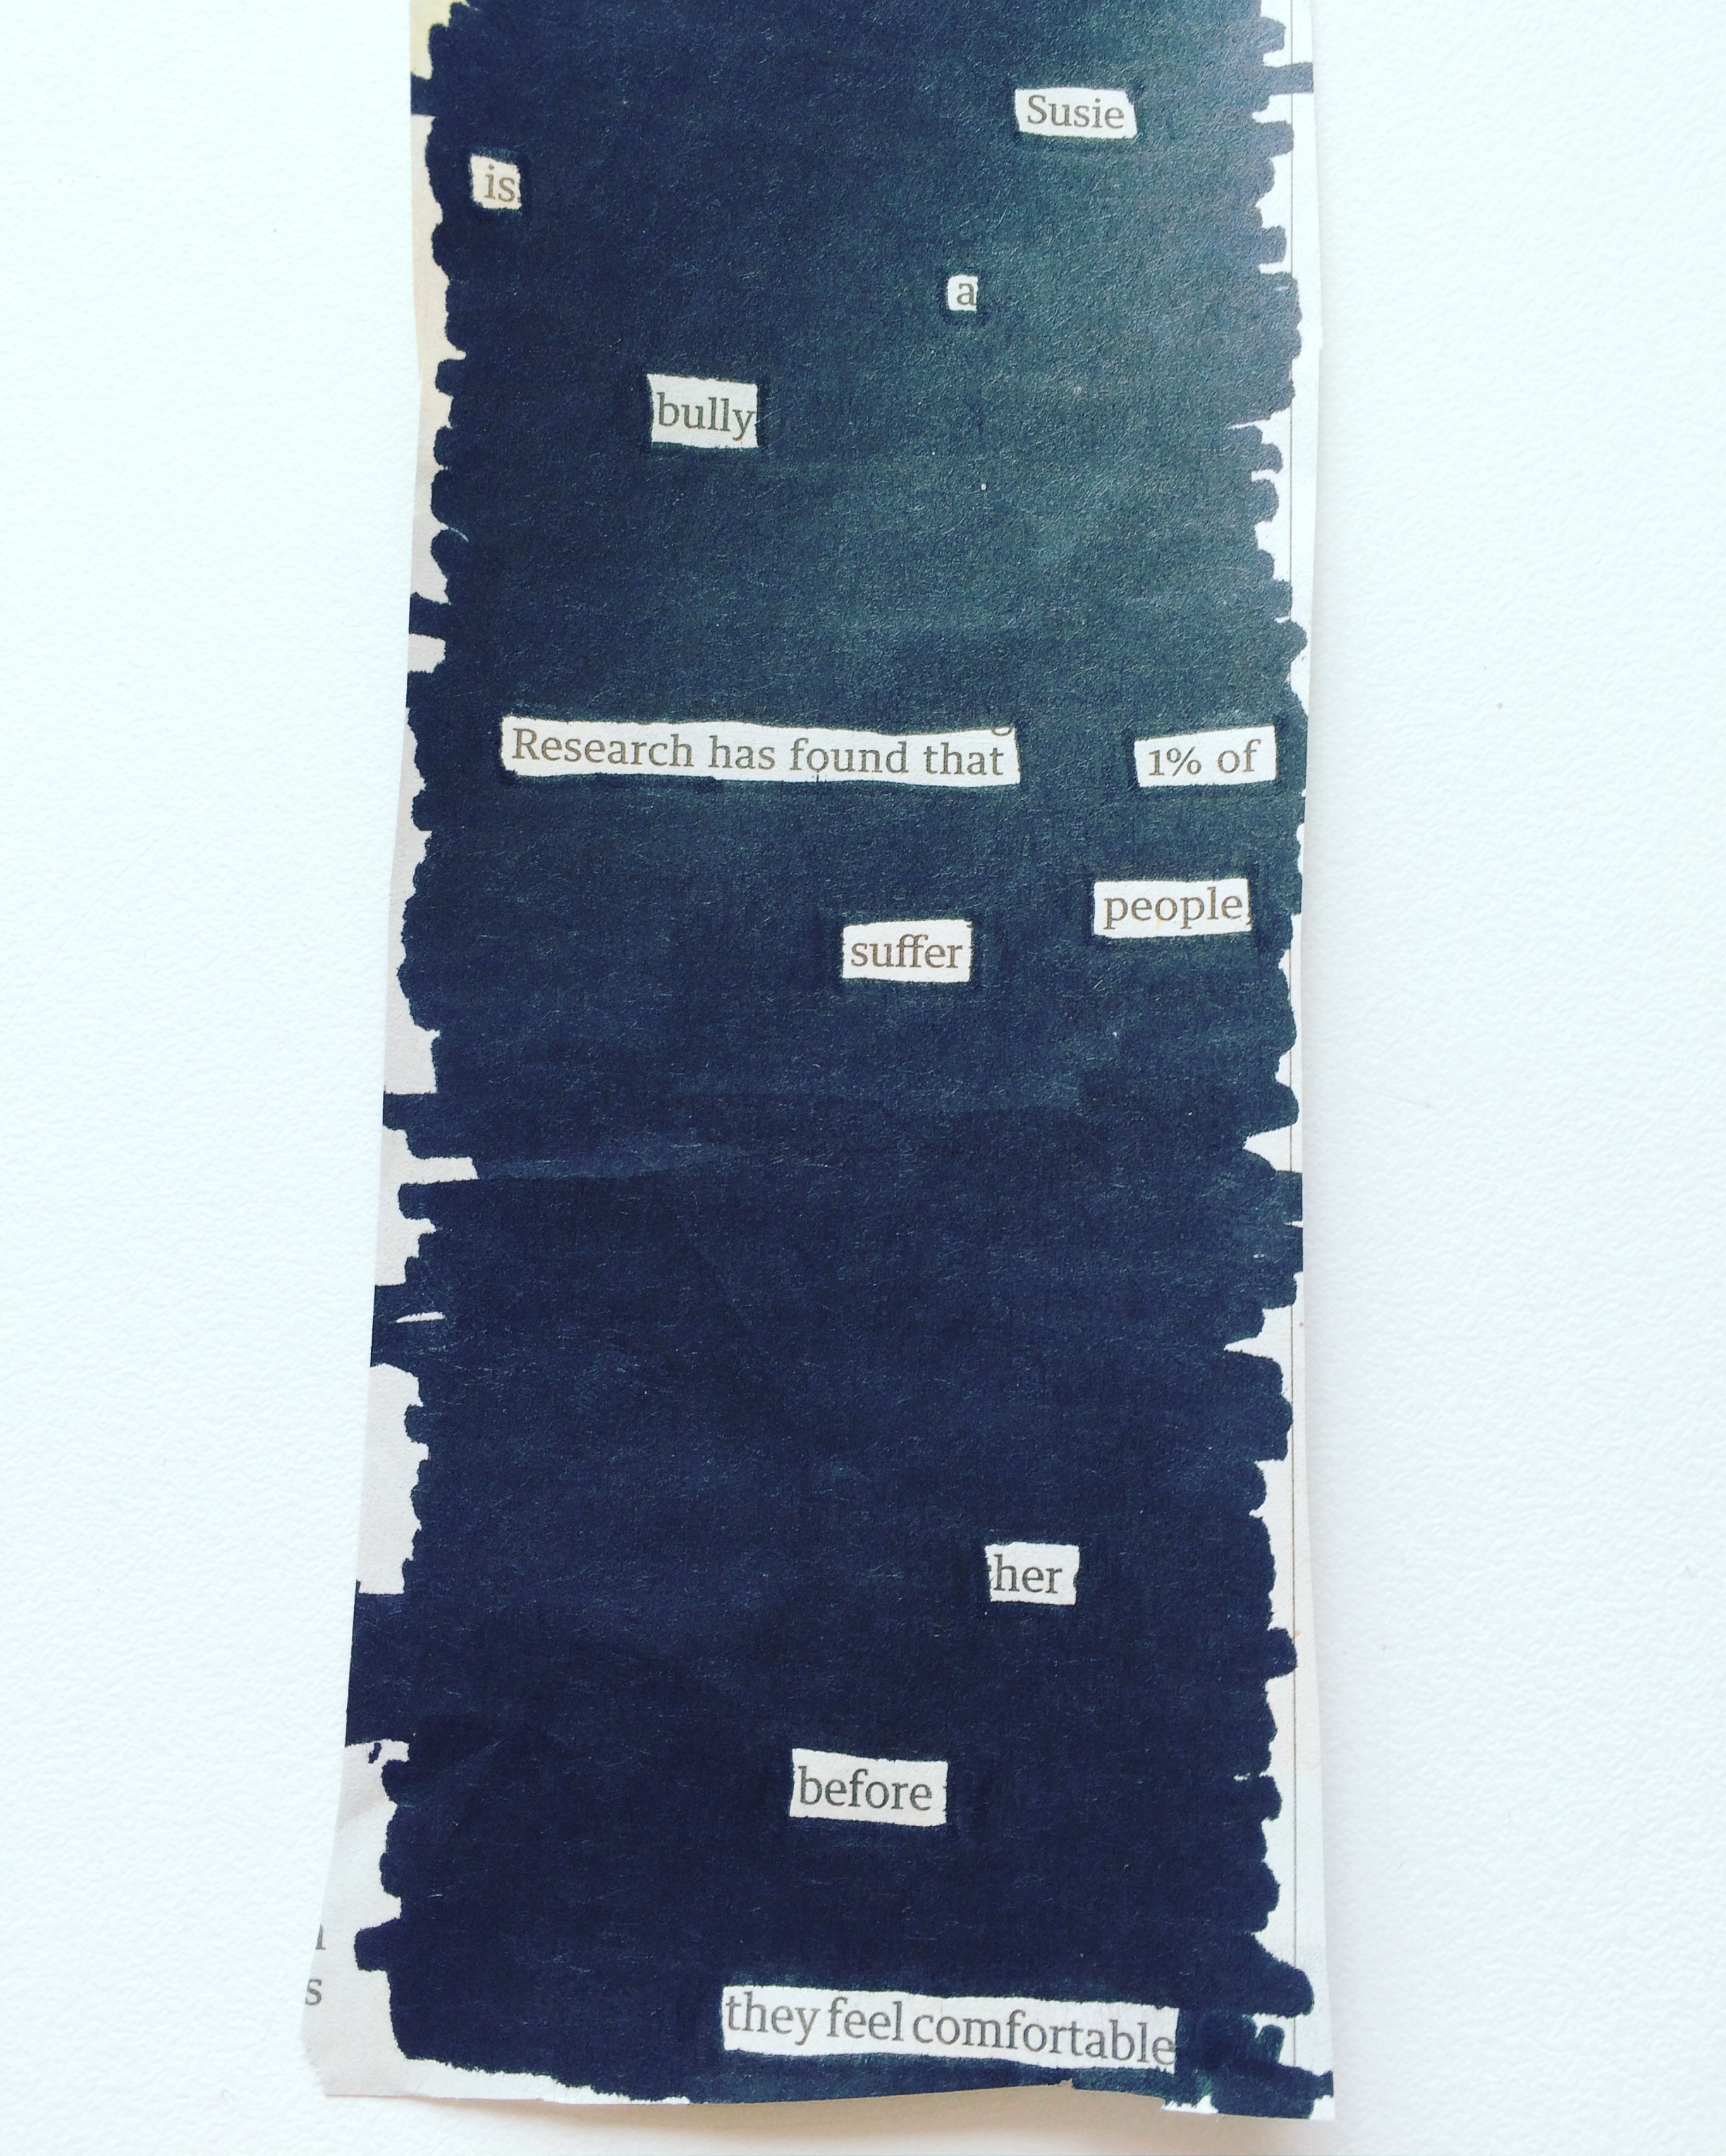 Susie
is
a
bully
Research has found that 1% of
people
suffer
her
before
they feel comfortable
s